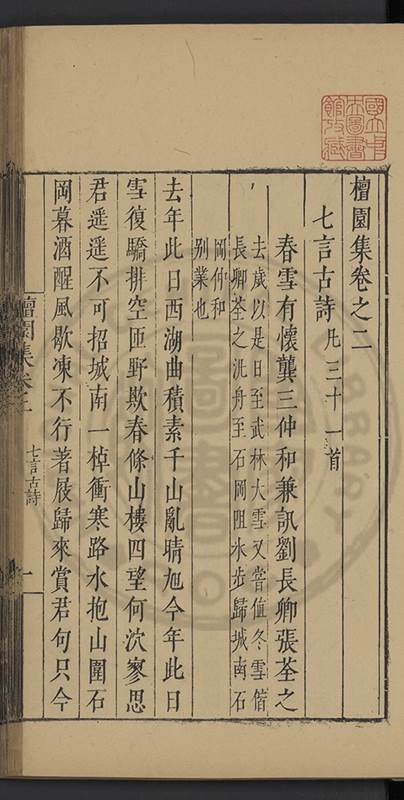 檀園集卷之二
七言古詩 凡三十一首
春雪有懷龔三仲和兼訊劉長卿張荃之
去歲以是日至武林大雪又嘗值冬雪偕
長卿荃之汎舟至石岡阻氷步歸城南石
岡仲和
别業也
去年此日西湖曲積素千山亂晴旭今年此日
雪復驕排空匝野欺春條山樓四望何泬寥思
君遥遥不可招城南一棹衝寒路水抱山圍石
岡暮酒醒風歇凍不行著屐歸來賞君句只今
檀園集卷之二
七言古詩
一